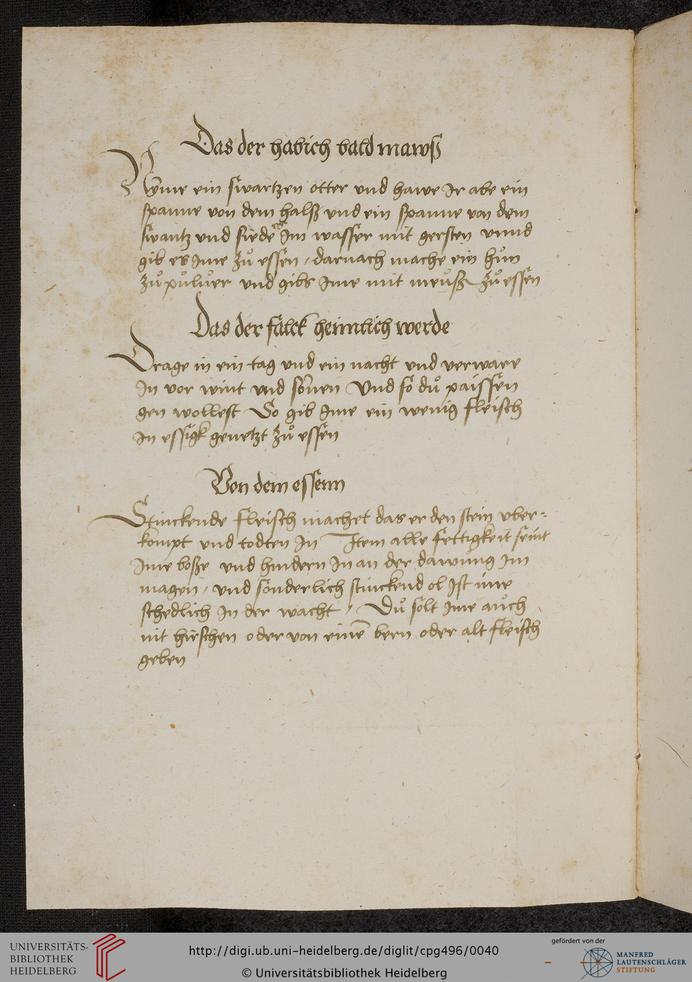 Das der habich bald mawß
Nyme ein swartzen otter vnd hawe Ir abe ein
spanne von dem halß vnd ein spanne von dem
swantz vnd siede Im wasser mit gersten vnnd
gib es Ime zů essen / darnach mache ein hun
zů puluer vnd gibs Ime mit meuß zů essen
Das der falck heimlich werde
Trage in ein tag vnd ein nacht vnd verware
In vor wint vnd sonen Vnd so dů paissen
gen wollest So gib Ime ein wenig fleisch
In essigk genetzt zů essen
Von dem essenn
Stinckende fleisch machet das er den stein vber-
kompt vnd todten In Item alle fettigkeit seint
Ime boße vnd hindern In an der dawung Im
magen / vnd sonderlich stinckend ol Ist ime
schedlich In der wacht / Dů solt Ime auch
nit hirschen oder von einē bern oder alt fleisch
geben
UNIVERSITÄTS-
BIBLIOTHEK
HEIDELBERG
http://digi.ub.uni-heidelberg.de/diglit/cpg496/0040
© Universitätsbibliothek Heidelberg
gefördert von der
MANFRED
LAUTENSCHLÄGER
STIFTUNG